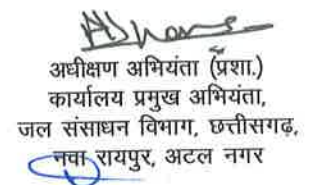 अधीक्षण अभियंता (प्रशा.)
कार्यालय प्रमुख अभियंता,
जल संसाधन विभाग, छत्तीसगढ़,
नवा रायपुर, अटल नगर